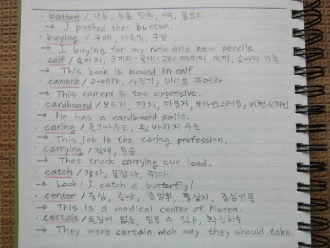 · button / 단추, 누름 단추, 버튼,
→ I pushed that button.
· buying / 구매,
→ I buying for my note and new pencils.
· calf / 송아지,
→ This book is bound in calf
· camera / 카메라, 사진기, 비디오 카메라
→ This camera is too expensive.
· cardboard / 보드지, 판지,
→ He has a cardboard smile.
· caring /
→ This job is the caring profession.
· carrying / 적재, 운송
→ That truck carrying our load.
· catch / 잡다, 붙잡다,
→ Look! I catch a butterfly!
· center / 중심, 중앙, 중심지,
→ This is a medical center of Korea.
· certain /
→ They were certain wich way they should take.